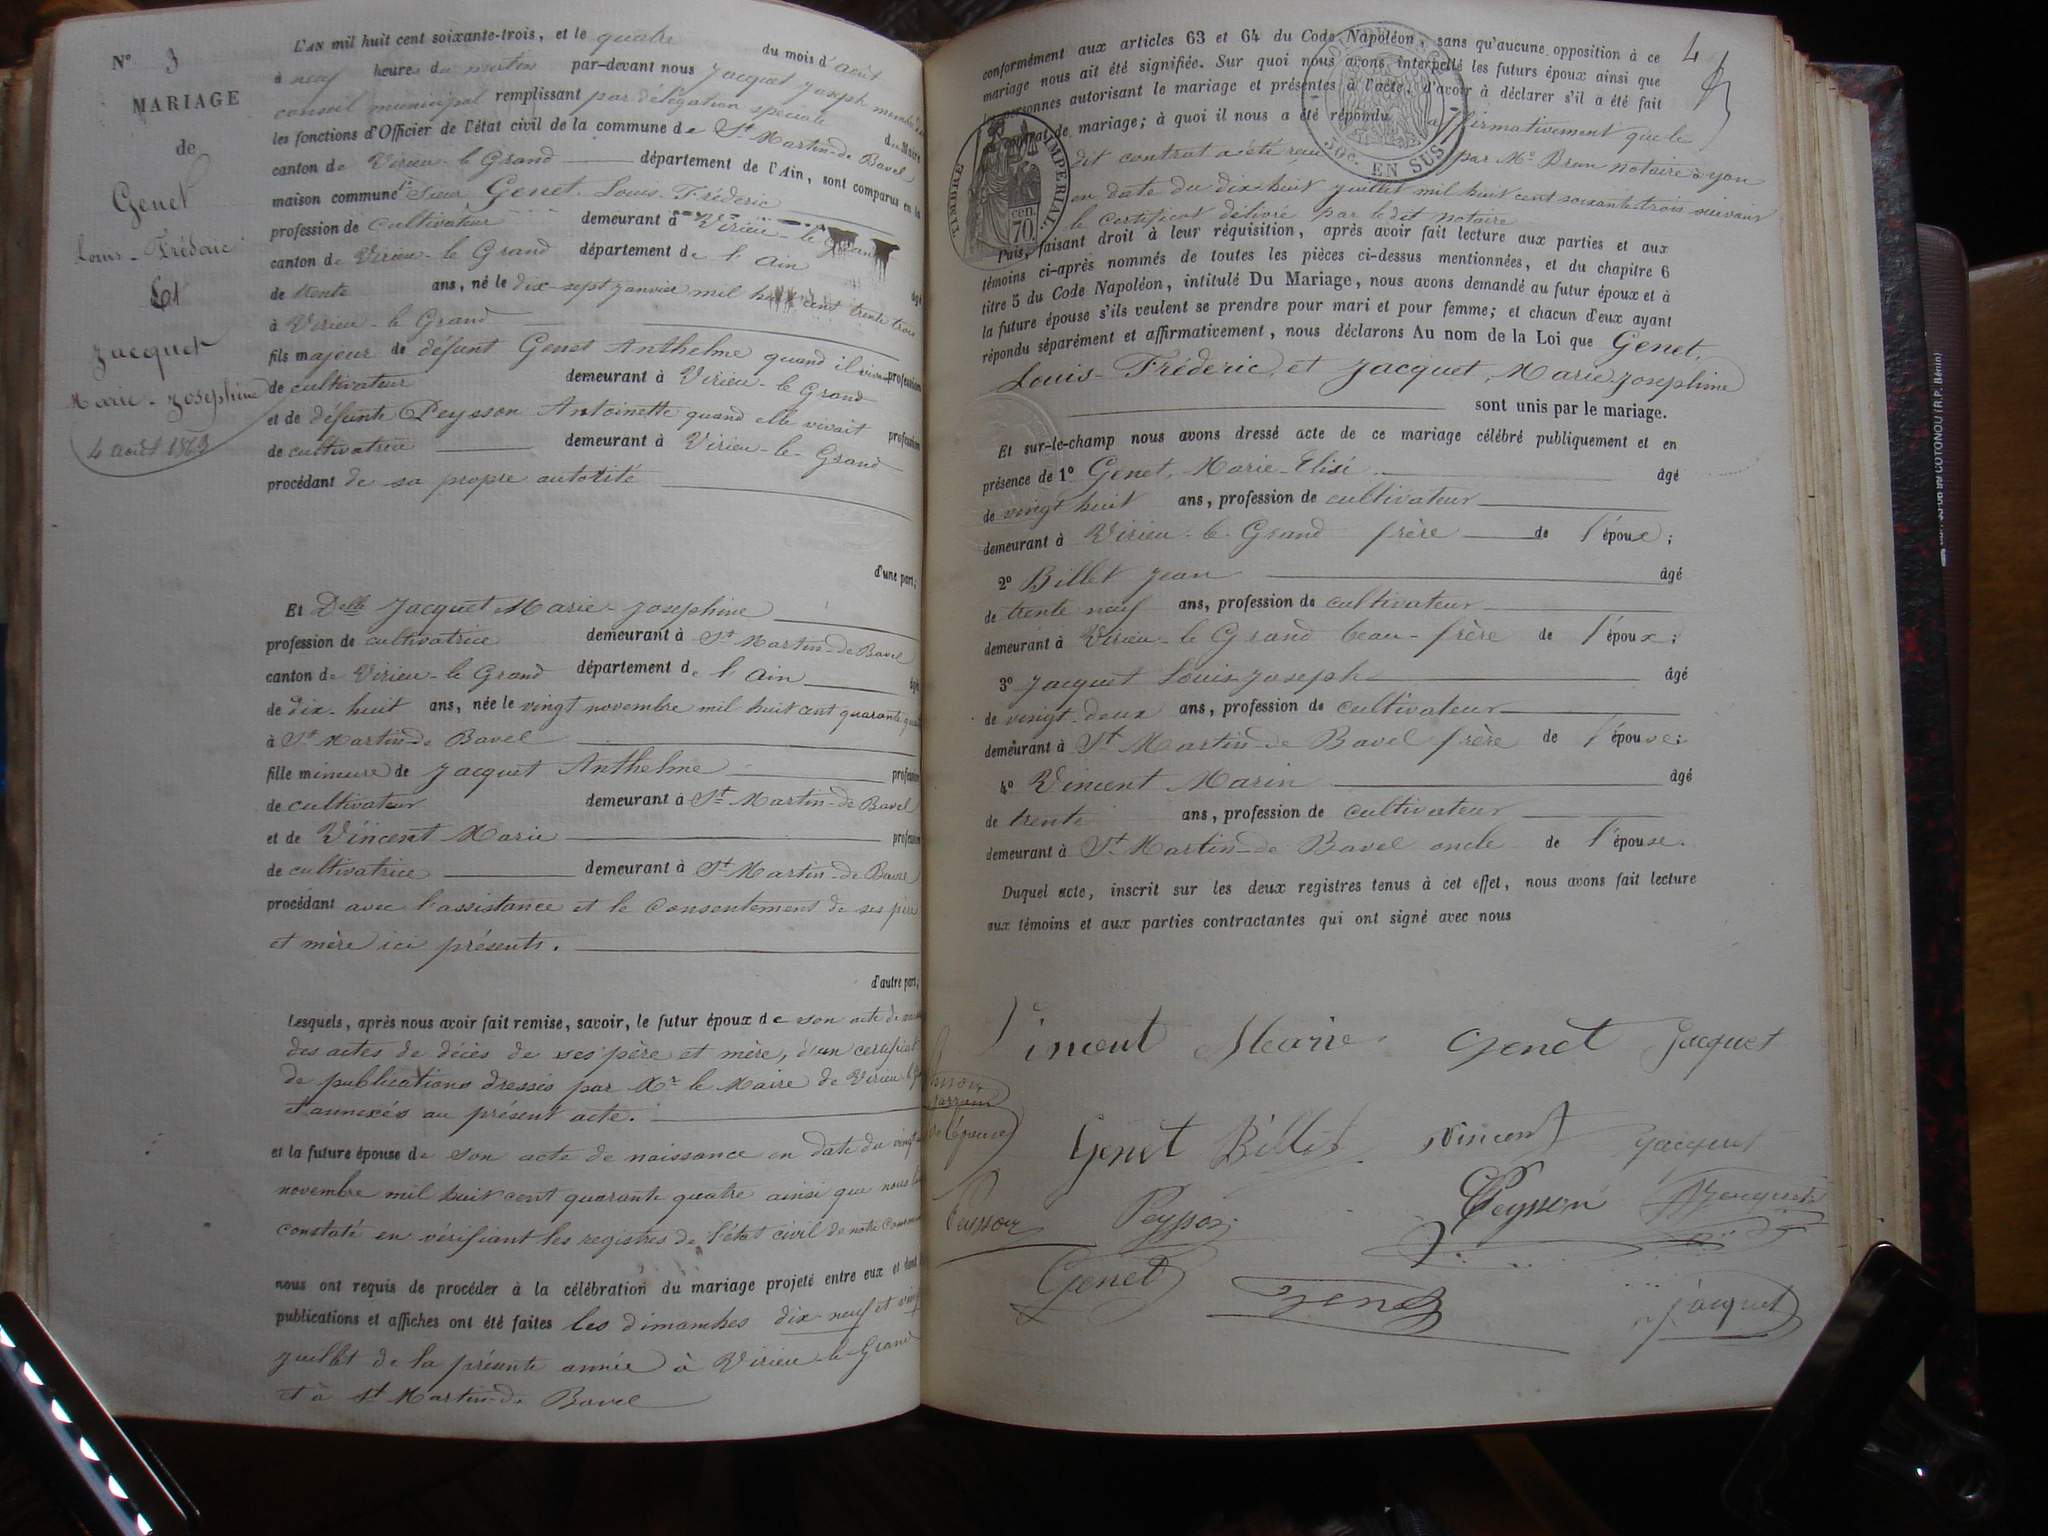 N° 3
MARIAGE
de
Genet
Louis-Fréderic
Et
Jacquet
Marie-Josephine
4 août 1863
L'AN mil huit cent soixante-trois, et le quatre du mois d'août
à neuf heures du matin par-devant nous Jacquet Joseph membre du
conseil municipal remplissant par délégation spéciale du Maire
les fonctions d'Officier de l'état civil de la commune de St Martin-de Bavel
canton de Virieu-le Grand département de l'Ain, sont comparus en la
maison commune Sieur Genet, Louis-Fréderic
profession de cultivateur demeurant à Virieu-le Grand
canton de Virieu-le Grand département de l'Ain âgé
de trente ans, né le dix-sept janvier mil huit cent trente trois
à Virieu-le Grand
fils majeur de défunt Genet Anthelme quand il vivait profession
de cultivateur demeurant à Virieu-le Grand
et de défunte Peysson Antoinette quand elle vivait profession
de cultivatrice demeurant à Virieu-le-Grand
procédant de sa propre autorité
d'une part;
Et Delle Jacquet Marie-Josephine
profession de cultivatrice demeurant à St Martin-de Bavel
canton de Virieu-le Grand département de l'Ain âgé
de dix-huit ans, née le vingt novembre mil huit cent quarante quatre
à St Martin-de Bavel
fille mineure de Jacquet Anthelme profession
de cultivateur demeurant à St Martin-de Bavel
et de Vincent Marie profession
de cultivatrice demeurant à St Martin-de Bavel
procédant avec l'assistance et le consentement de ses père
et mère ici présents.
d'autre part;
Lesquels, après nous avoir fait remise, savoir, le futur époux de son acte de
des actes de décès de ses père et mère, d'un certificat
de publications dressés par Mr le Maire de Virieu
et annexés au présent acte.
et la future épouse de son acte de naissance en date du vingt
novembre mil huit cent quarante quatre ainsi que nous
constaté en vérifiant les registres de l'état civil de notre commune
nous ont requis de procéder à la célébration du mariage projeté entre eux et dont
publications et affiches ont été faites les dimanches dix neuf et
juillet de la présente année à Virieu-le-Grand
et à St Martin-de Bavel
4
conformément aux articles 63 et 64 du Code Napoléon, sans qu'aucune opposition à ce
mariage nous ait été signifiée. Sur quoi nous avons interpellé les futurs époux ainsi que
les personnes autorisant le mariage et présentes à l'acte, d'avoir à déclarer s'il a été fait
contrat de mariage; à quoi il nous a été répondu affirmativement que le
dit contrat a été reçu par Me Brun notaire à yon
en date du dix huit juillet mil huit cent soixante-trois suivant
le certificat délivré par le dit notaire
Puis, faisant droit à leur réquisition, après avoir fait lecture aux parties et aux
témoins ci-après nommés de toutes les pièces ci-dessus mentionnées, et du chapitre 6
titre 5 du Code Napoléon, intitulé Du Mariage, nous avons demandé au futur époux et à
la future épouse s'ils veulent se prendre pour mari et pour femme; et chacun d'eux ayant
répondu séparément et affirmativement, nous déclarons Au nom de la Loi que Genet,
Louis-Fréderic, et Jacquet, Marie Josephine
sont unis par le mariage.
Et sur-le-champ nous avons dressé acte de ce mariage célébré publiquement et en
présence de 1° Genet, Marie-Elisé âgé
de vingt huit ans, profession de cultivateur
demeurant à Virieu-le-Grand frère de l'époux;
2° Billet Jean âgé
de trente neuf ans, profession de cultivateur
demeurant à Virieu-le Grand beau-frère de l'époux;
3° Jacquet Louis-Joseph âgé
de vingt-deux ans, profession de cultivateur
demeurant à St Martin-de Bavel frère de l'épouse;
4° Vincent Marin âgé
de trente ans, profession de cultivateur
demeurant à St Martin-de Bavel oncle de l'épouse.
Duquel acte, inscrit sur les deux registres tenus à cet effet, nous avons fait lecture
aux témoins et aux parties contractantes qui ont signé avec nous
Vincent Marie Genet Jacquet
de l'épouse
Genet Billet Vincent Jacquet
Peysson Peysson Peysson Jacquet
Genet Genet Jacquet
TIMBRE IMPÉRIAL
70 cen.
50c. EN SUS
COTONOU (R.P. Bénin)